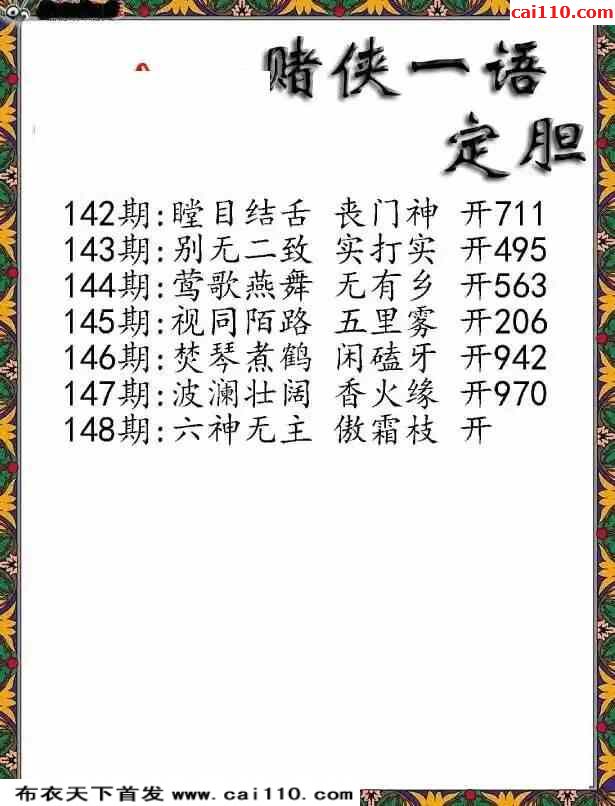 cai110.com
赌侠一语
定胆
142期:瞠目结舌 丧门神 开711
143期:别无二致 实打实 开495
144期:莺歌燕舞 无有乡 开563
145期:视同陌路 五里雾 开206
146期:焚琴煮鹤 闲磕牙 开942
147期:波澜壮阔 香火缘 开970
148期:六神无主 傲霜枝 开
布衣天下首发 www.cai110.com